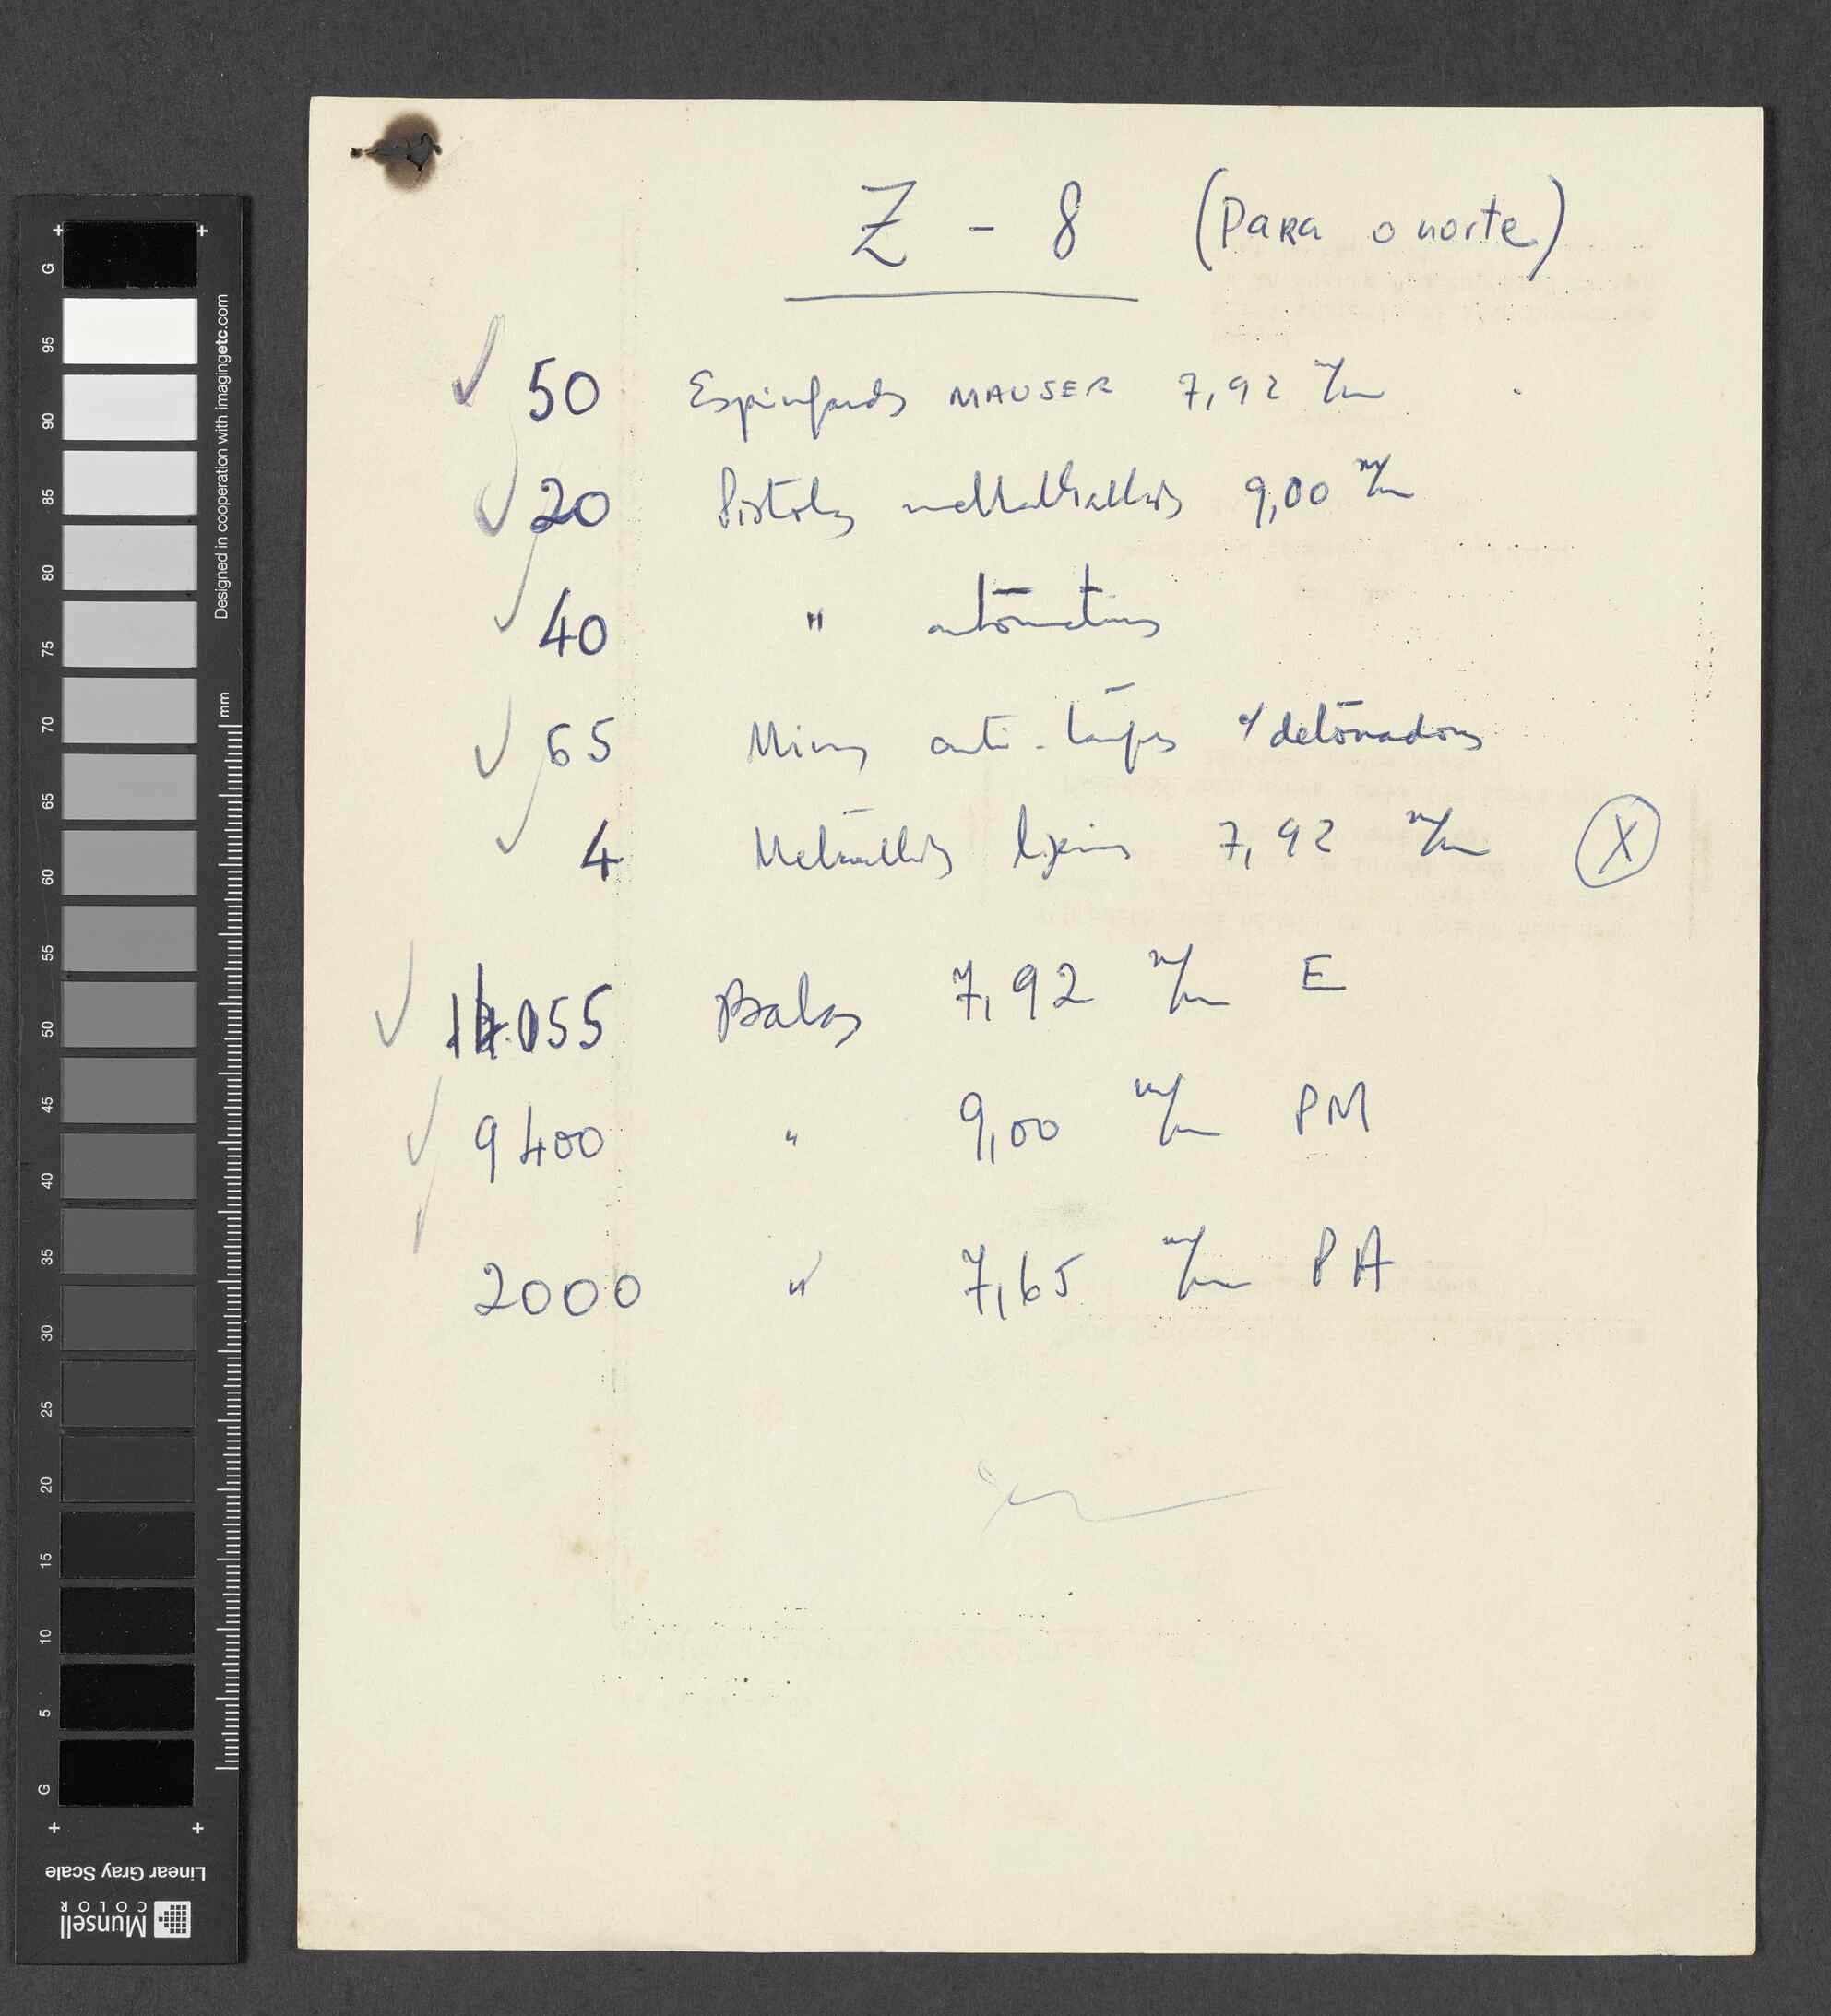 Z - 8 (Para o norte)
✓ 50 Espingardas MAUSER 7,92 m/m
✓ 20 Pistolas metralhadoras 9,00 m/m
✓ 40 " automáticas
✓ 65 Minas anti-tanques c/ detonadores
✓ 4 Metralhadoras ligeiras 7,92 m/m X
✓ Balas 7,92 m/m E
✓ 9400 " 9,00 m/m PM
✓ 2000 " 7,65 m/m PA
+ +
G
95
90
85
80
75
70
65
60
55
50
45
40
35
30
25
20
15
10
5
G
+ +
Designed in cooperation with imagingetc.com
mm
Linear Gray Scale
Munsell
COLOR